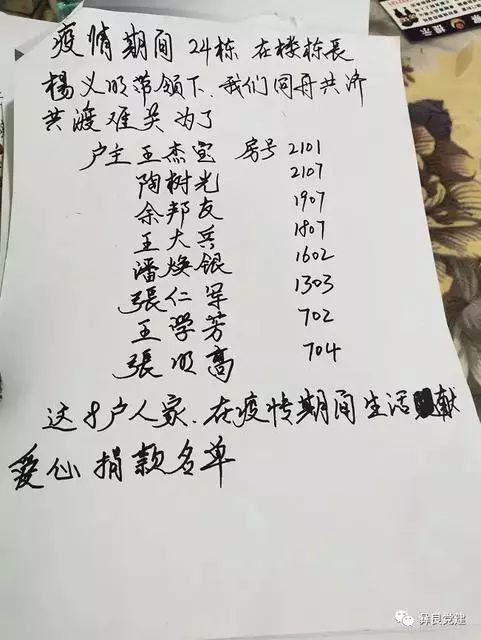 疫情期间 24栋 在楼栋长
杨义明带领下.我们同舟共济
共渡难关为了
户主 王杰宝 房号 2101
陶树光 2107
余邦友 1907
王大兵 1807
潘焕银 1602
張仁军 1303
王学芳 702
張明高 704
这8户人家.在疫情期间生活献
爱心捐款名单
提示
彝良党建